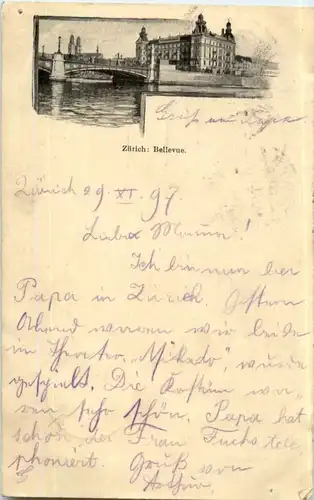 Gruß an
Zürich: Bellevue.
Zürich 29. XI. 97
Liebe Mama!
Ich bin nun bei
Papa in Zürich. Gestern
Abend waren wir beide
im Theater, „Mikado", wurde
gespielt. Die Kostüm wa-
ren sehr schön. Papa hat
schon der Frau Fuchs tele
phoniert. Gruß von
Arthur